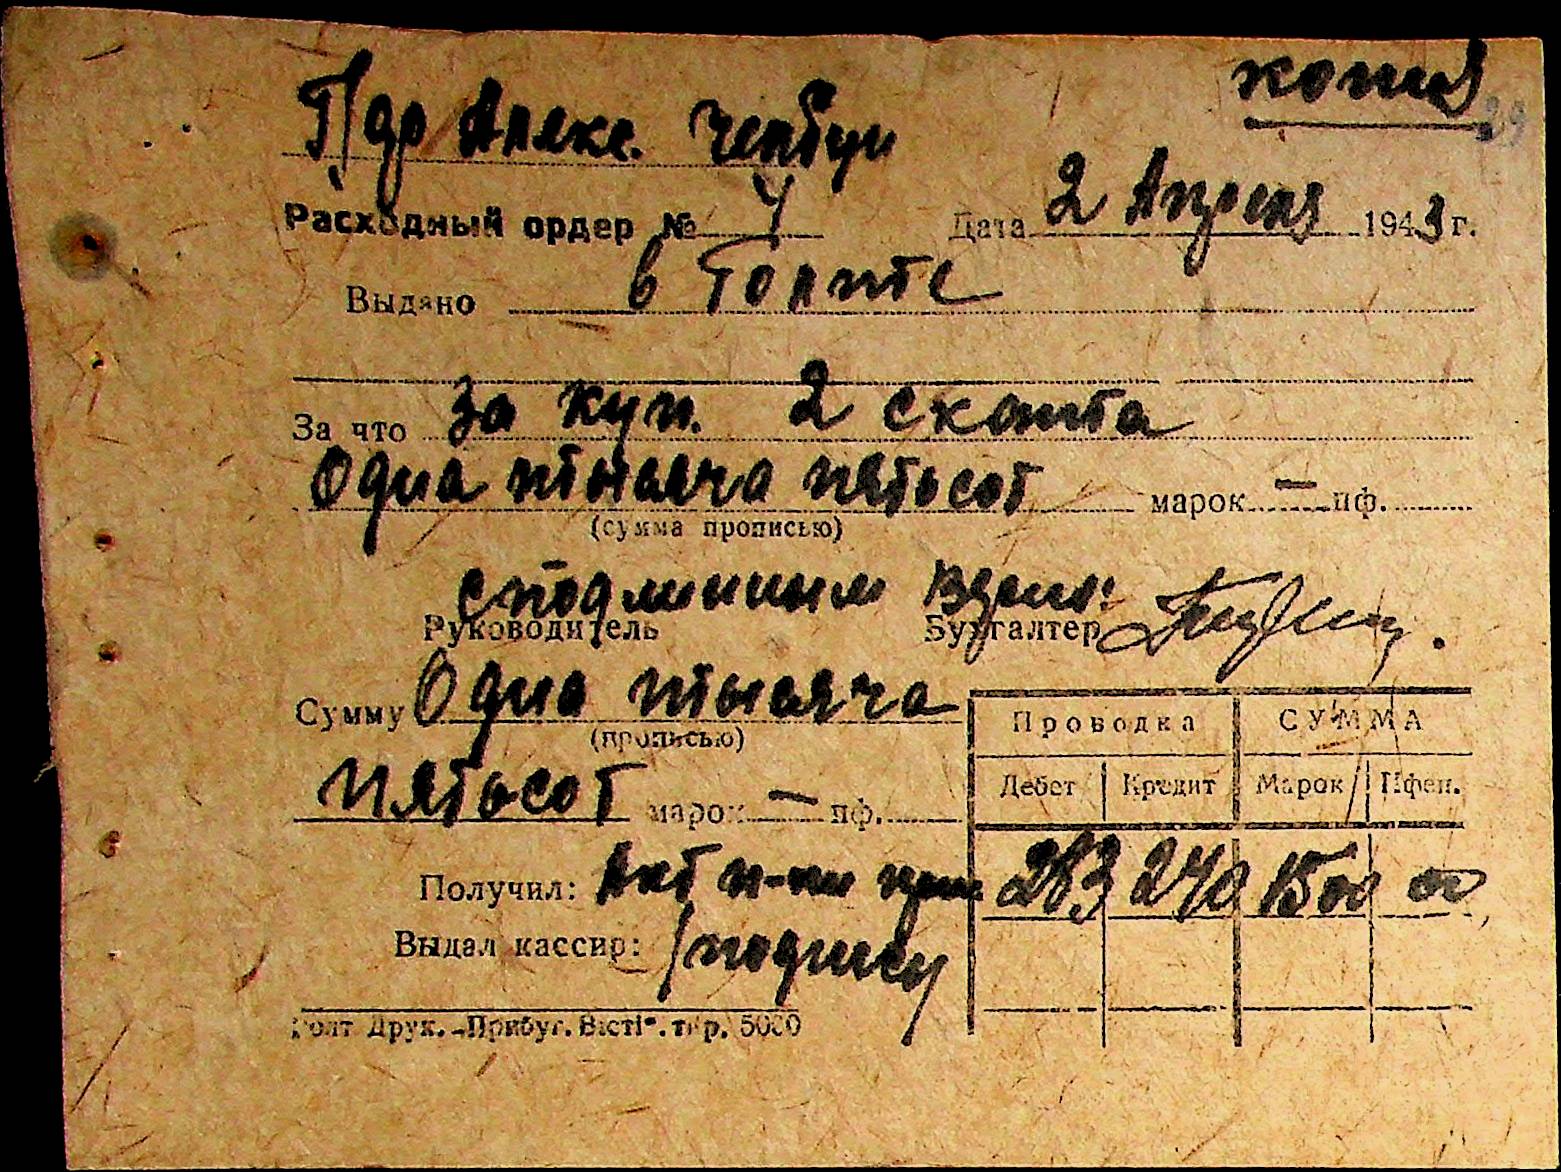 копия
29
Пдр Алекс.
Расходный ордер № 4 Дата 2 Апреля 1943 г.
Выдано в Голте
За что За куп. 2 скота
Одна тысяча пятьсот марок — пф.
(сумма прописью)
с подлинным верно:
Руководитель Бухгалтер
Сумму Одна тысяча
(прописью)
пятьсот марок — пф.
Проводка СУММА
Дебет Кредит Марок Пфен.
283 240 1500 00
Получил: Акт
Выдал кассир: /подписи/
Голт Друк. „Прибуг. Вісті". тир. 5000